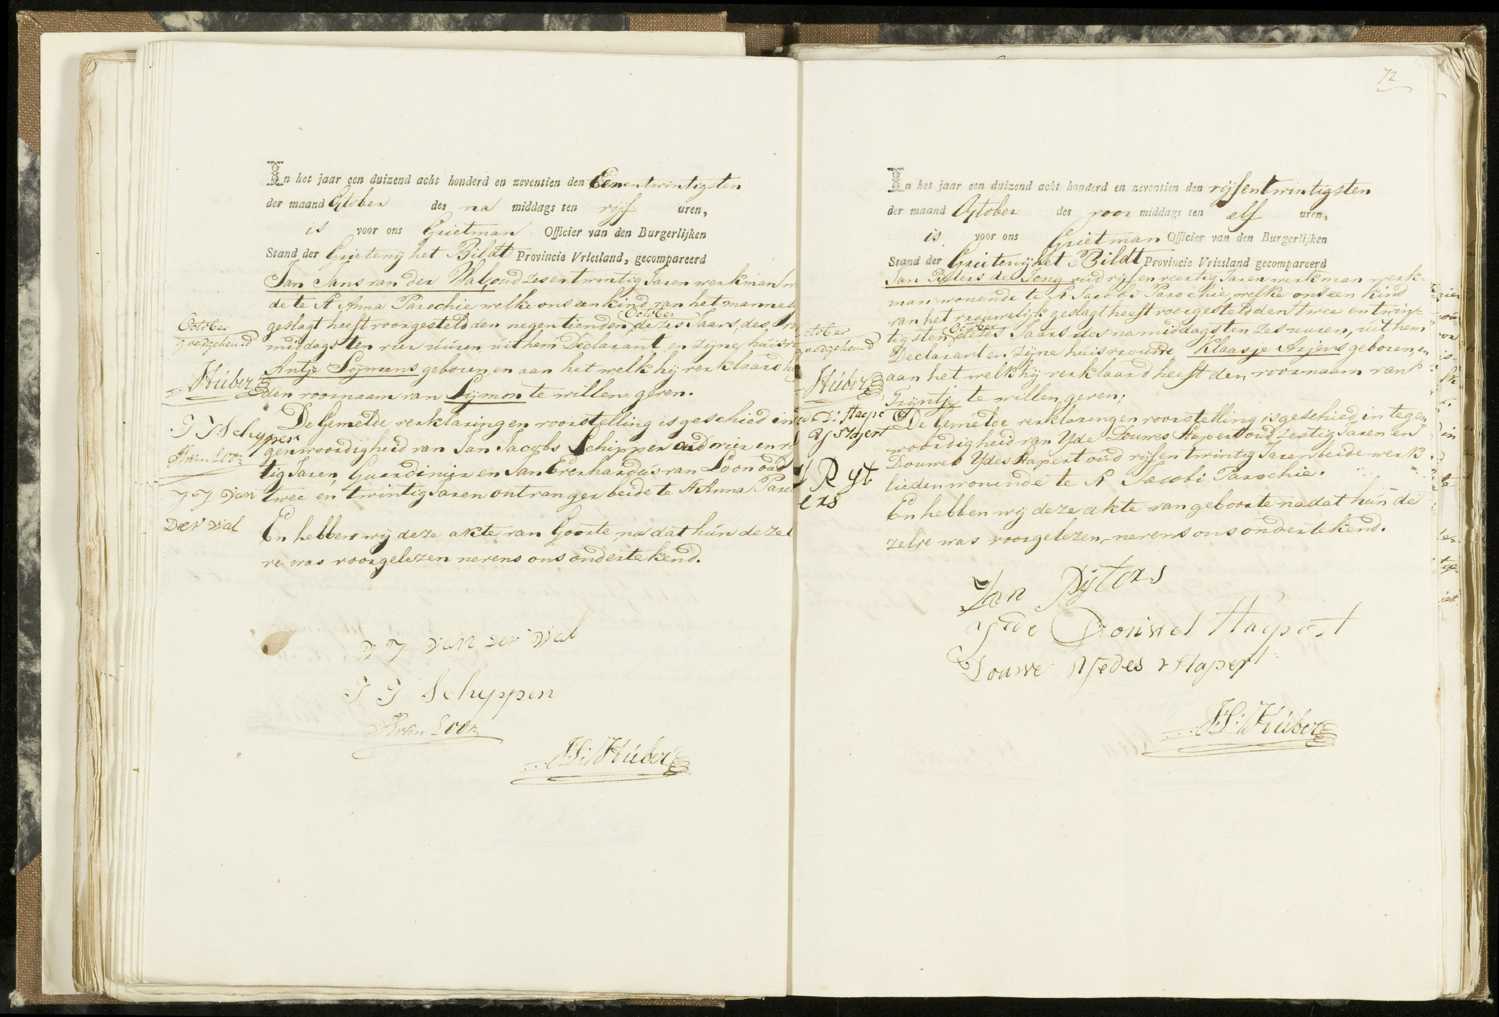 In het jaar een duizend acht honderd en zeventien den Eenentwintigsten
der maand October des na middags ten vijf uren,
is voor ons Grietman Officier van den Burgerlijken
Stand der Grietenij het Bildt Provincie Vriesland, gecompareerd
Jan Jans van der Wal oud zesentwintig Jaren werkman
de te St Anna Parochie welke ons een kind van het mannelij
geslagt heeft voorgesteld den negentienden October dezes Jaars, des
middags ten vier uuren uit hem Declarant en zijne huisvr
Antje Sijmens geboren en aan het welk hij verklaard
den voornaam van Sijmon te willen geven.
De Gemelde verklaring en voorstelling is geschied in
genwoordigheid van Jan Jacobs Schipper oud drie en
tig Jaren, Gardenier en Jan Everhardus van Loon oud
twee en twintig Jaren ontvanger beide te St Anna Paro
En hebben wij deze akte van Gboote na dat hún dezel
ve was voorgelezen nevens ons ondertekend.
October
goedgekeurd
Húber
J J Schypper
J J van
Der Wal
J J van der Wal
J J Schyppen
H: Húber
72
In het jaar een duizend acht honderd en zeventien den vijfentwintigsten
der maand October des voor middags ten elf uren,
is voor ons Grietman Officier van den Burgerlijken
Stand der Grietenij het Bildt Provincie Vriesland gecompareerd
Jan Pijters de Jong oud vijf en veertig Jaren werkman werk
man wonende te St Jacobi Parochie, welke ons een kind
van het vrouwelijk geslagt heeft voorgesteld den twee en twin
tigsten October dezes Jaars des namiddags ten zes uuren, uit hem
Declarant en zijne huisvrouwe Klaasje Arjens geboren, en
aan het welk hij verklaard heeft den voornaam van
Trijntje te willen geven;
De Gemelde verklaring en voorstelling is geschied in tegen
woordigheid van Yde Douwes Hapert oud zestig Jaren en
Douwes Ydes Hapert oud vijf en twintig Jaren beide werk
lieden wonende te St Jacobi Parochie.
En hebben wij deze akte van geboorte na dat hún de
zelve was voorgelezen, nevens ons ondertekend.
October
goedgekeurd
Húber
Jan Pijters
Yede Douwes Haepert
Douwe Yedes Hapert
H: Húber